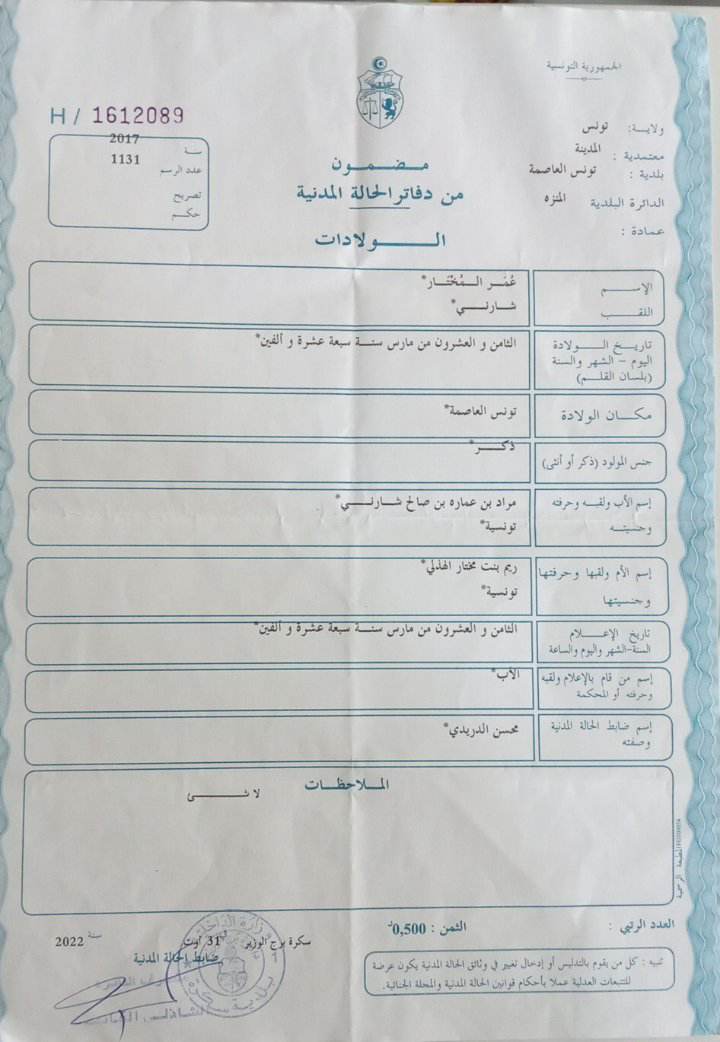 الجمهورية التونسية
ولاية: تونس
معتمدية : المدينة
بلدية : تونس العاصمة
الدائرة البلدية : المنزه
عمادة :
H / 1612089
سنة 2017
عدد الرسم 1131
تصريح
حكم
مضمون
من دفاتر الحالة المدنية
الولادات
الإسم عُمَر المُخْتَار*
اللقب شارني*
تاريخ الولادة الثامن و العشرون من مارس سنة سبعة عشرة و ألفين*
اليوم - الشهر والسنة
(بلسان القلم)
مكان الولادة تونس العاصمة*
جنس المولود (ذكر أو أنثى) ذكر*
إسم الأب ولقبه وحرفته مراد بن عماره بن صالح شارني*
وجنسيته تونسية*
إسم الأم ولقبها وحرفتها ريم بنت مختار الهذلي*
وجنسيتها تونسية*
تاريخ الإعلام الثامن و العشرون من مارس سنة سبعة عشرة و ألفين*
السنة-الشهر واليوم والساعة
إسم من قام بالإعلام ولقبه الأب*
وحرفته أو المحكمة
إسم ضابط الحالة المدنية محسن الدريدي*
وصفته
الملاحظات
لا شئ
المطبعة الرسمية
العدد الرتبي :
الثمن : 0,500د
تنبيه : كل من يقوم بالتدليس أو إدخال تغيير في وثائق الحالة المدنية يكون عرضة
للتتبعات العدلية عملا بأحكام قوانين الحالة المدنية والمجلة الجنائية.
سكرة برج الوزير في 31 أوت سنة 2022
ضابط الحالة المدنية
وزارة الداخلية
بلدية سكرة